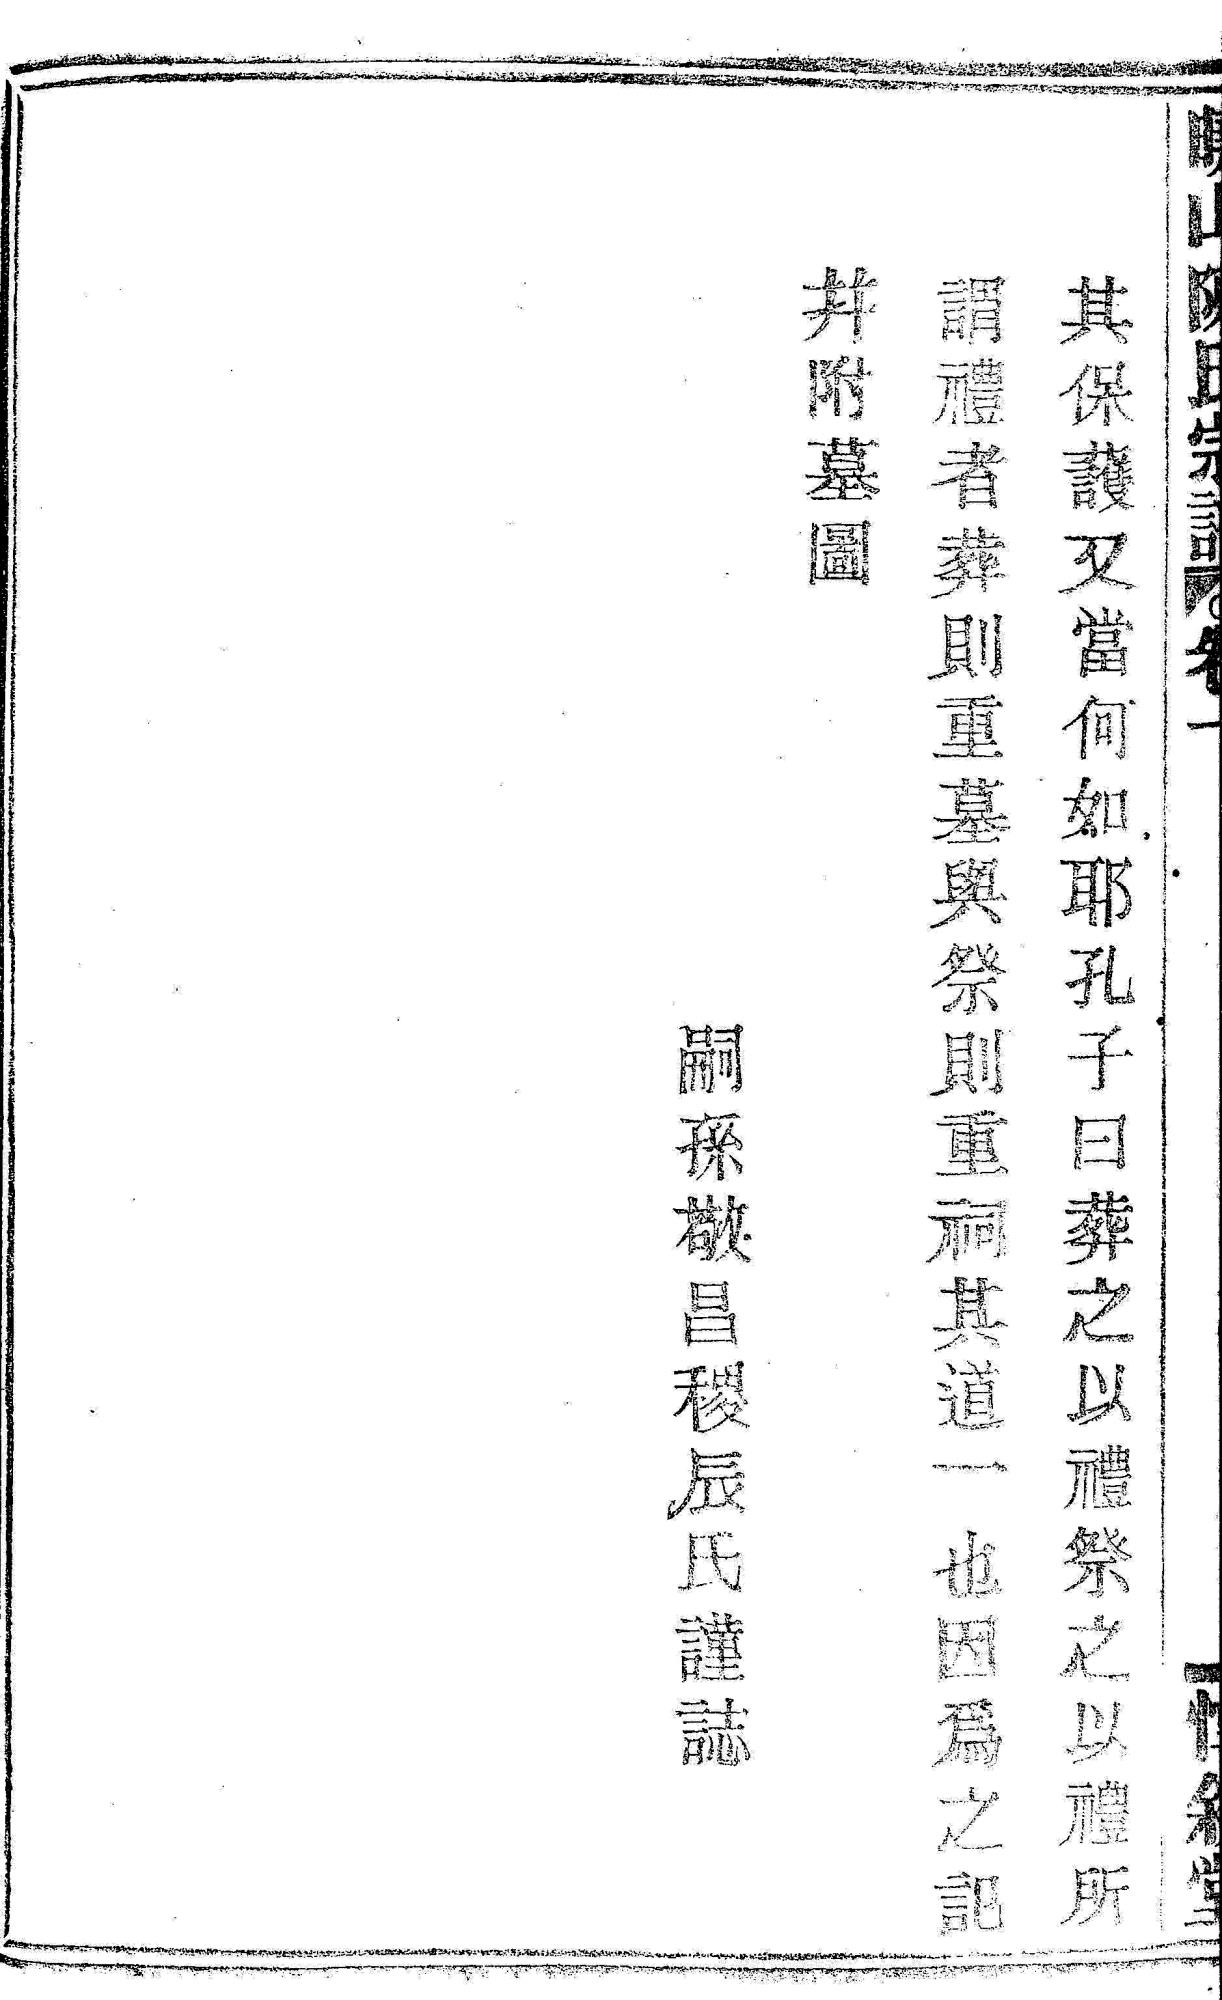 山陳氏宗譜 卷一
其保護又當何如耶孔子曰葬之以禮祭之以禮所
謂禮者葬則重墓與祭則重祠其道一也因爲之記
幷附墓圖
嗣孫敬昌稷辰氏謹誌